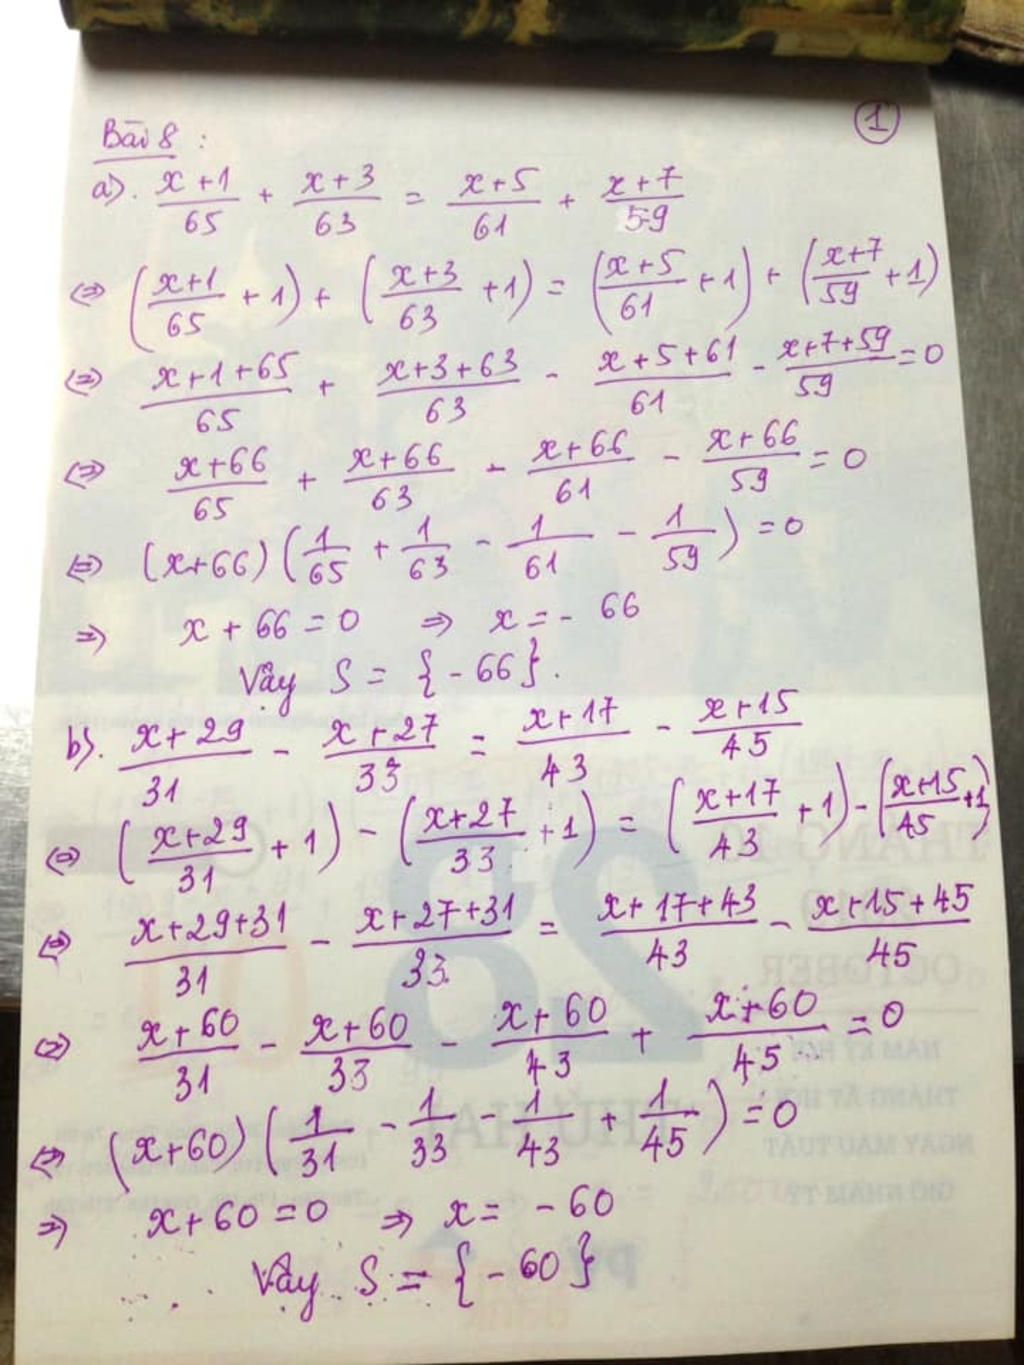 ①
Bài 8 :
a). (x+1)/65 + (x+3)/63 = (x+5)/61 + (x+7)/59
⇔ ((x+1)/65 + 1) + ((x+3)/63 + 1) = ((x+5)/61 + 1) + ((x+7)/59 + 1)
⇔ (x+1+65)/65 + (x+3+63)/63 - (x+5+61)/61 - (x+7+59)/59 = 0
⇔ (x+66)/65 + (x+66)/63 - (x+66)/61 - (x+66)/59 = 0
⇔ (x+66)(1/65 + 1/63 - 1/61 - 1/59) = 0
⇒ x + 66 = 0 ⇒ x = - 66
Vậy S = {- 66}.
b). (x+29)/31 - (x+27)/33 = (x+17)/43 - (x+15)/45
⇔ ((x+29)/31 + 1) - ((x+27)/33 + 1) = ((x+17)/43 + 1) - ((x+15)/45 + 1)
⇔ (x+29+31)/31 - (x+27+31)/33 = (x+17+43)/43 - (x+15+45)/45
⇔ (x+60)/31 - (x+60)/33 - (x+60)/43 + (x+60)/45 = 0
⇔ (x+60)(1/31 - 1/33 - 1/43 + 1/45) = 0
⇒ x+60 = 0 ⇒ x = - 60
Vậy S = {- 60}